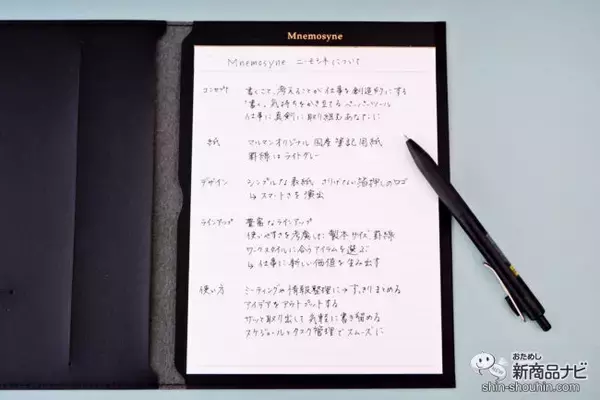 Mnemosyne
Mnemosyne ニーモシネについて
コンセプト 書くこと、考えることが仕事を創造的にする
「書く」気持ちをかき立てるペーパーツール
仕事に真剣に取り組むあなたに
紙 マルマンオリジナル国産筆記用紙
罫線はライトグレー
デザイン シンプルな表紙 さりげない箔押しのロゴ
↳ スマートさを演出
ラインアップ 豊富なラインアップ
使いやすさを考慮した製本 サイズ 罫線
ワークスタイルに合うアイテムを選ぶ
↳ 仕事に新しい価値を生み出す
使い方 ミーティングや情報整理に→すっきりまとめる
アイデアをアウトプットする
サッと取り出して気軽に書き留める
スケジュールやタスク管理でスムーズに
おためし
新商品ナビ
shin-shouhin.com